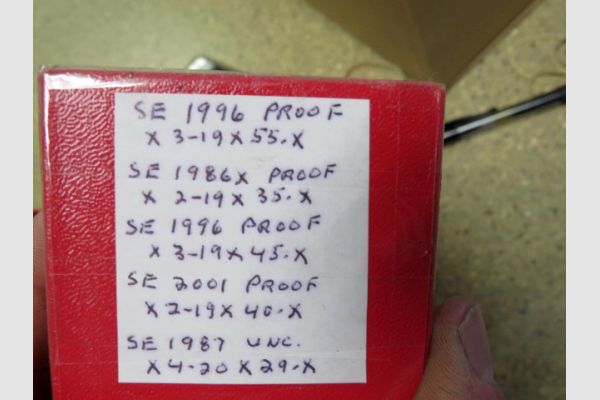 SE 1996 PROOF
X 3-19 X 55.X
SE 1986X PROOF
X 2-19 X 35.X
SE 1996 PROOF
X 3-19 X 45.X
SE 2001 PROOF
X 2-19 X 40.X
SE 1987 UNC.
X 4-20 X 29.X